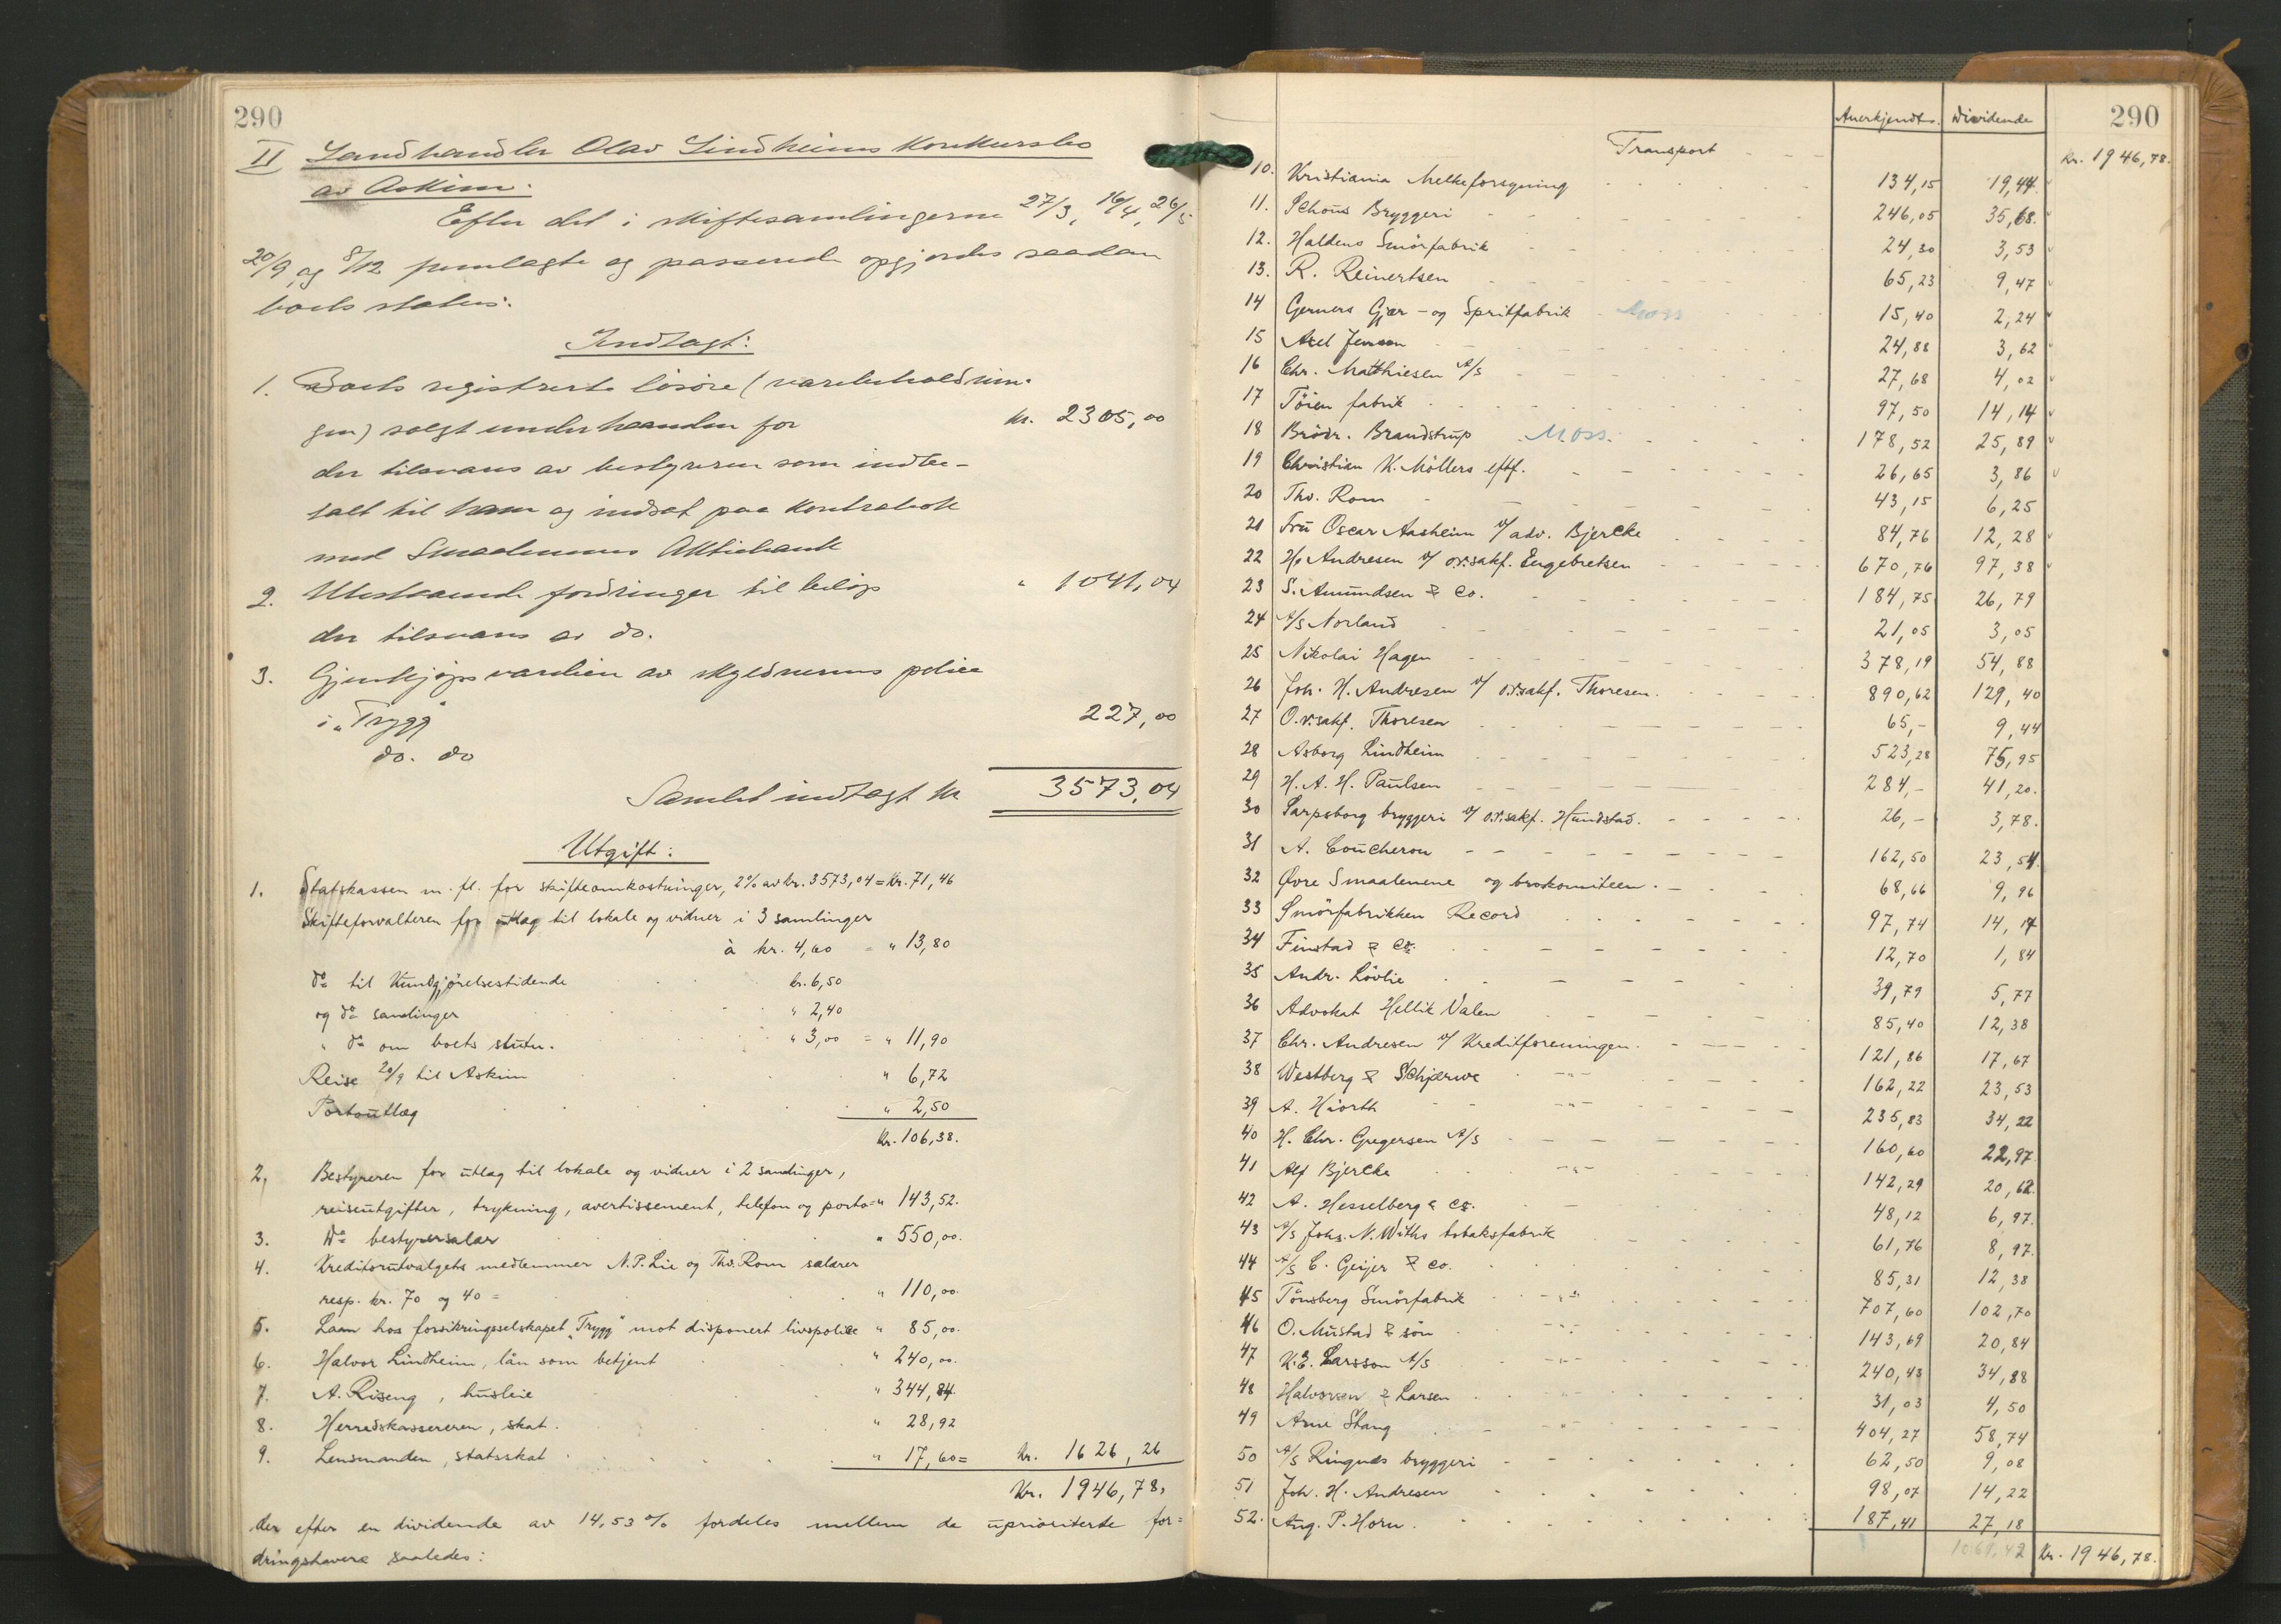 290
II Landhandler Olav Lindheims Konkursbo
av Askim.
Efter det i skiftesamlingerne 27/3, 16/4, 26/5
20/9, og 8/12 fremlagte og passerede opgjordes saadan
boets status:
Indtægt:
1. Boets registrerte lösöre (varebeholdnin-
gen) solgt underhaanden for kr. 2305,00
der tilsvares av bestyreren som indbe-
talt til ham og indsat paa Kontrabok
med Smaalenenes Aktiebank
2. Utestaaende fordringer til beløp " 1041,04
der tilsvares av do.
3. Gjenkjøpsværdien av skyldnerens police
i "Trygg" 227,00
do. do
Samlet indtægt kr 3573,04
Utgift:
1. Statskassen m. fl. for skifteomkostninger, 2% av kr. 3573,04 = Kr. 71,46
Skifteforvalteren for utlag til lokale og vidner i 3 samlinger
à kr. 4,60 = " 13,80
do til Kundgjørelsestidende kr. 6,50
og do samlinger " 2,40
" do om boets slutn. " 3,00 = " 11,90
Reise 20/9 til Askim " 6,72
Portoutlæg " 2,50
Kr. 106,38.
2, Bestyreren for utlag til lokale og vidner i 2 samlinger,
reiseutgifter, trykning, avertissement, telefon og porto = " 143,52.
3. Do bestyrersalær " 550,00.
4. Kreditorutvalgets medlemmer N.P. Lie og Thv. Rom salærer
resp. kr. 70 og 40 = " 110,00.
5. Laan hos forsikringsselskapet "Trygg" mot disponert livspolice " 85,00.
6. Halvor Lindheim, lön som betjent " 240,00.
7. A. Riseng, husleie " 344,84.
8. Herredskassereren, skat. " 28,92
9. Lensmanden, statsskat " 17,60 = Kr. 1626,26
Kr. 1946,78,
der efter en dividende av 14,53% fordeles mellem de uprioriterte for=
dringshavere saaledes:
Anerkjendt. Dividende 290
Transport Kr. 1946,78.
10. Kristiania Melkeforsyning 134,15 19,44.
11. Schous Bryggeri 246,05 35,68.
12. Haldens Smörfabrik 24,30 3,53
13. R. Reinertsen 65,23 9,47
14 Gerners Gjær- og Spritfabrik Moss 15,40 2,24
15 Axel Jensen 24,88 3,62
16 Chr. Matthiesen A/S 27,68 4,02
17 Töien fabrik 97,50 14,14
18 Brödr. Brandstrup Moss. 178,52 25,89
19 Christian K. Möllers eftf. 26,65 3,86
20 Thv. Rom 43,15 6,25
21 Fru Oscar Aasheim v/ adv. Bjercke 84,76 12,28
22 H. Andresen v/ o.r.sakf. Engebretsen 670,76 97,38
23 S. Amundsen & Co. 184,75 26,79
24 A/S Norland 21,05 3,05
25 Nikolai Hagen 378,19 54,88
26 Joh. H. Andresen v/ o.r.sakf. Thoresen. 890,62 129,40
27 O.r.sakf. Thoresen 65,- 9,44
28 Asborg Lindheim 523,28 75,95
29 H. A. H. Paulsen 284,- 41,20.
30 Sarpsborg bryggeri v/ o.r.sakf. Hundstad. 26,- 3,78.
31 A. Coucheron 162,50 23,54
32 Øvre Smaalenene og brokomiteen. 68,66 9,96
33 Smörfabrikken Record 97,74 14,17
34 Finstad & Co. 12,70 1,84
35 Andr. Lövlie 39,79 5,77
36 Advokat Hellik Valen 85,40 12,38
37 Chr. Andresen v/ Kreditforeningen. 121,86 17,67
38 Westberg & Schjerwe -"- 162,22 23,53
39 A. Hiorth -"- 235,83 34,22
40 H. Chr. Gregersen A/S 160,60 22,97
41 Alf Bjercke -"- 142,29 20,62.
42 A. Hesselberg & Co. 48,12 6,97.
43 A/S Johs. N. Withs tobaksfabrik 61,76 8,97.
44 A/S C. Geijer & Co. 85,31 12,38
45 Tönsberg Smörfabrik -"- 707,60 102,70
46 O. Mustad & sön -"- 143,69 20,84
47 K. E. Larsson A/S -"- 240,43 34,88
48 Halvorsen & Larsen -"- 31,03 4,50
49 Arne Stang -"- 404,27 58,74
50 A/S Ringnes bryggeri 62,50 9,08
51 Joh. H. Andresen 98,07 14,22
52. Aug. P. Horn. 187,41 27,18
1069,42 Kr. 1946,78.